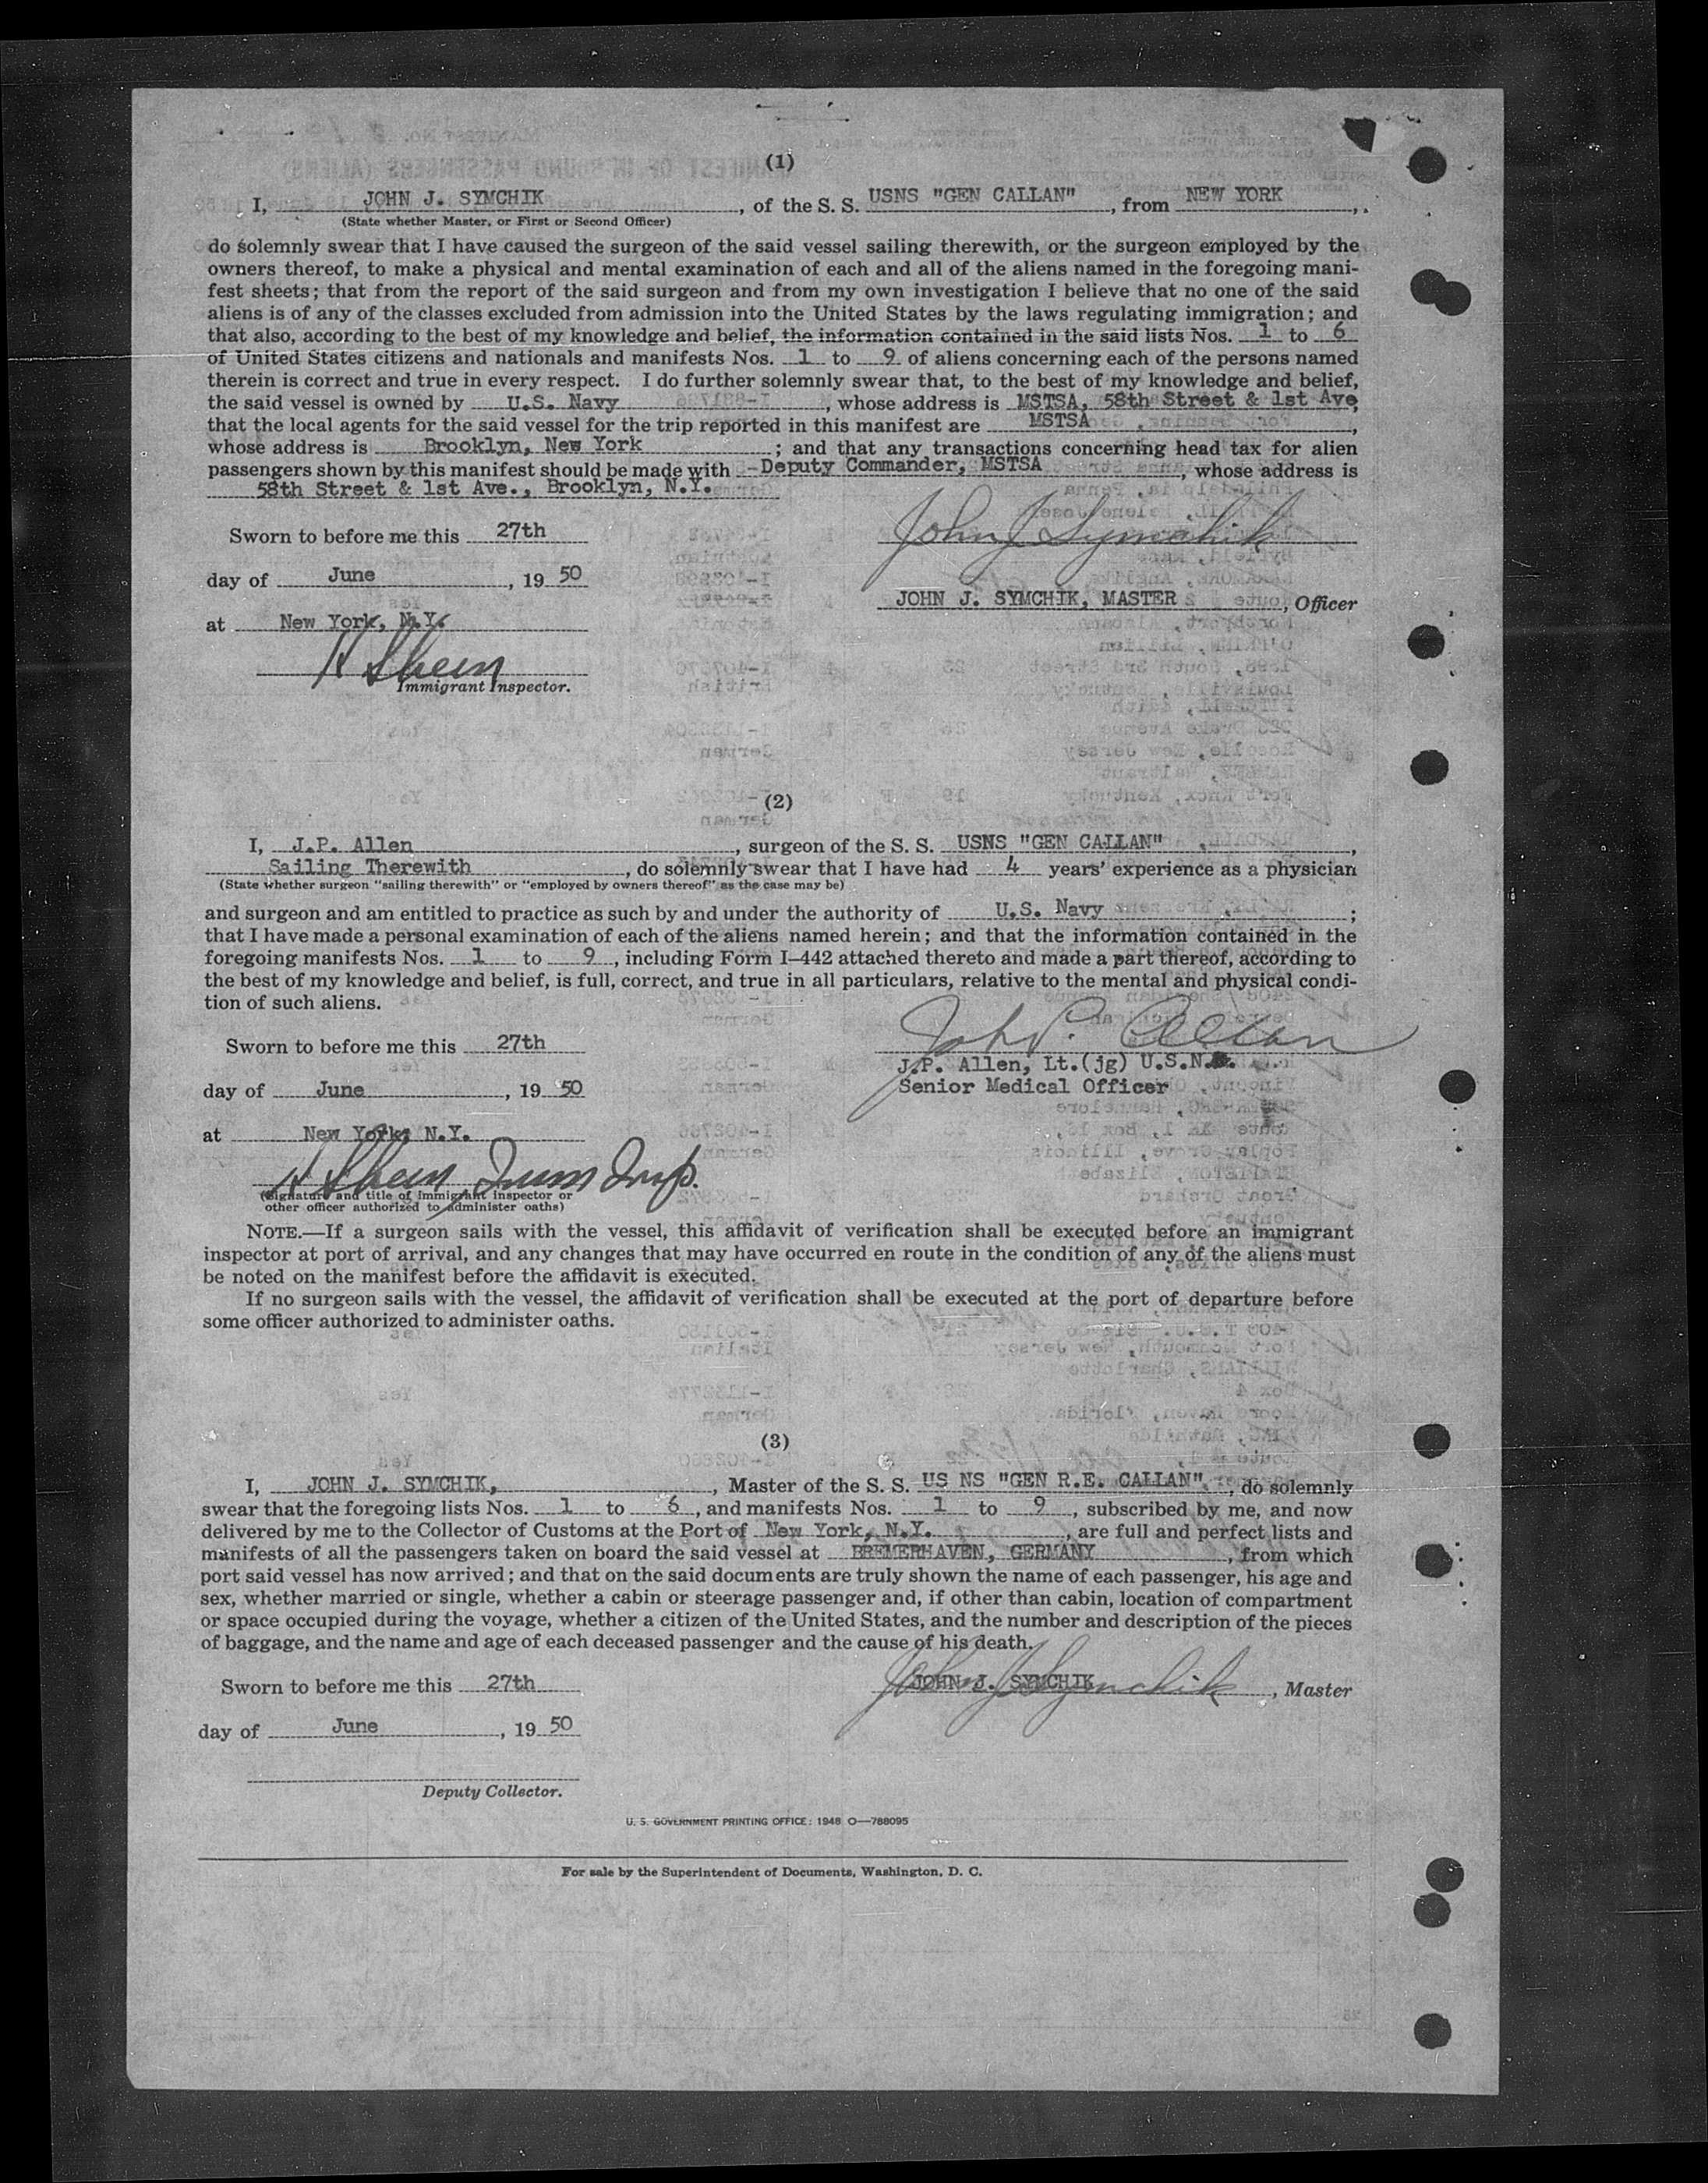 (1)
I, JOHN J. SYMCHIK, of the S. S. USNS "GEN CALLAN", from NEW YORK,
(State whether Master, or First or Second Officer)
do solemnly swear that I have caused the surgeon of the said vessel sailing therewith, or the surgeon employed by the
owners thereof, to make a physical and mental examination of each and all of the aliens named in the foregoing mani-
fest sheets; that from the report of the said surgeon and from my own investigation I believe that no one of the said
aliens is of any of the classes excluded from admission into the United States by the laws regulating immigration; and
that also, according to the best of my knowledge and belief, the information contained in the said lists Nos. 1 to 6
of United States citizens and nationals and manifests Nos. 1 to 9 of aliens concerning each of the persons named
therein is correct and true in every respect. I do further solemnly swear that, to the best of my knowledge and belief,
the said vessel is owned by U.S. Navy, whose address is MSTSA, 58th Street & 1st Ave,
that the local agents for the said vessel for the trip reported in this manifest are MSTSA,
whose address is Brooklyn, New York; and that any transactions concerning head tax for alien
passengers shown by this manifest should be made with -Deputy Commander, MSTSA, whose address is
58th Street & 1st Ave., Brooklyn, N.Y.
Sworn to before me this 27th
John J Symchik
day of June, 19 50
JOHN J. SYMCHIK, MASTER, Officer
at New York, N.Y.
H Shein
Immigrant Inspector.
(2)
I, J.P. Allen, surgeon of the S. S. USNS "GEN CALLAN",
Sailing Therewith, do solemnly swear that I have had 4 years' experience as a physician
(State whether surgeon "sailing therewith" or "employed by owners thereof" as the case may be)
and surgeon and am entitled to practice as such by and under the authority of U.S. Navy;
that I have made a personal examination of each of the aliens named herein; and that the information contained in the
foregoing manifests Nos. 1 to 9, including Form I–442 attached thereto and made a part thereof, according to
the best of my knowledge and belief, is full, correct, and true in all particulars, relative to the mental and physical condi-
tion of such aliens.
Sworn to before me this 27th
John P. Allen
J.P. Allen, Lt.(jg) U.S.N.
day of June, 19 50
Senior Medical Officer
at New York, N.Y.
H Shein, Imm Insp.
(Signature and title of immigrant inspector or
other officer authorized to administer oaths)
NOTE.—If a surgeon sails with the vessel, this affidavit of verification shall be executed before an immigrant
inspector at port of arrival, and any changes that may have occurred en route in the condition of any of the aliens must
be noted on the manifest before the affidavit is executed.
If no surgeon sails with the vessel, the affidavit of verification shall be executed at the port of departure before
some officer authorized to administer oaths.
(3)
I, JOHN J. SYMCHIK, , Master of the S. S. US NS "GEN R.E. CALLAN", do solemnly
swear that the foregoing lists Nos. 1 to 6, and manifests Nos. 1 to 9, subscribed by me, and now
delivered by me to the Collector of Customs at the Port of New York, N.Y., are full and perfect lists and
manifests of all the passengers taken on board the said vessel at BREMERHAVEN, GERMANY, from which
port said vessel has now arrived; and that on the said documents are truly shown the name of each passenger, his age and
sex, whether married or single, whether a cabin or steerage passenger and, if other than cabin, location of compartment
or space occupied during the voyage, whether a citizen of the United States, and the number and description of the pieces
of baggage, and the name and age of each deceased passenger and the cause of his death.
John J Symchik
Sworn to before me this 27th
JOHN J. SYMCHIK, Master
day of June, 19 50
Deputy Collector.
U. S. GOVERNMENT PRINTING OFFICE: 1948 O—788095
For sale by the Superintendent of Documents, Washington, D. C.